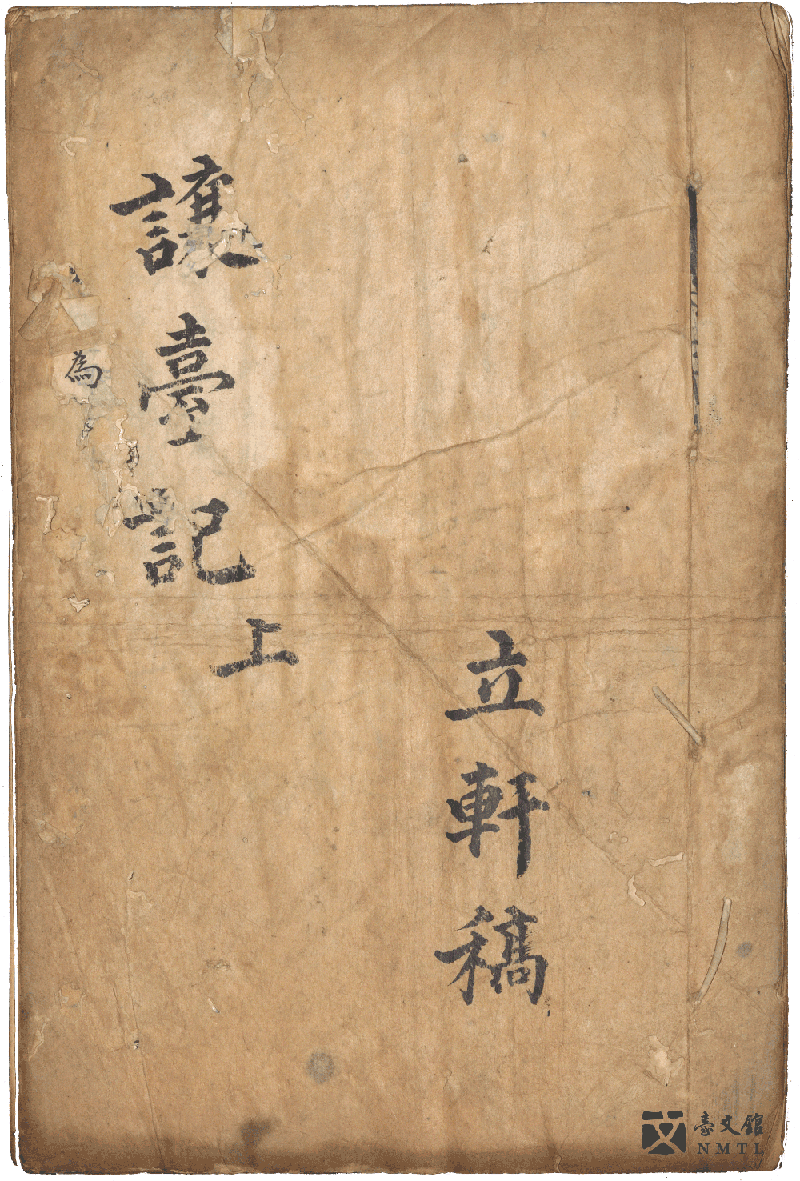 立軒稿
讓臺記
上
為
臺文館
NMTL